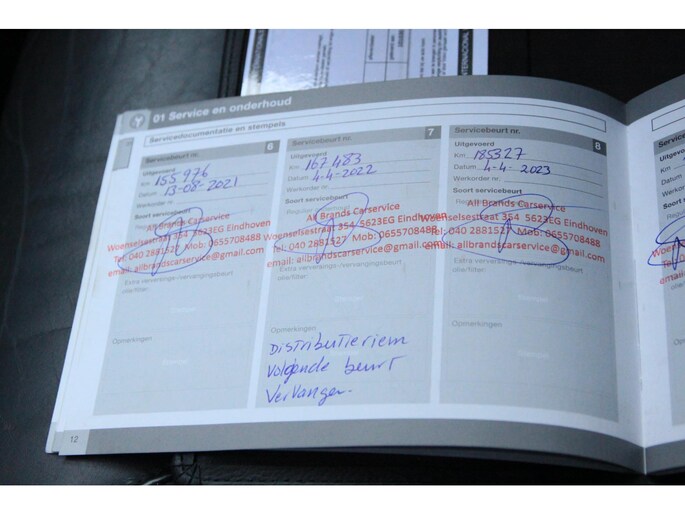 01 Service en onderhoud
Servicedocumentatie en stempels
Servicebeurt nr. 6
Uitgevoerd
Km 155 976
Datum 13-08-2021
Werkorder nr.
Soort servicebeurt
All Brands Carservice
Woenselsestraat 354 5623EG Eindhoven
Tel: 040 2881527 Mob: 0655708488
email: allbrandscarservice@gmail.com
Extra verversings-/vervangingsbeurt
olie/filter:
Opmerkingen
Servicebeurt nr. 7
Uitgevoerd
Km 167 483
Datum 4-4-2022
Werkorder nr.
Soort servicebeurt
All Brands Carservice
Woenselsestraat 354 5623EG Eindhoven
Tel: 040 2881527 Mob: 0655708488
email: allbrandscarservice@gmail.com
Extra verversings-/vervangingsbeurt
olie/filter:
Opmerkingen
Distributieriem
volgende beurt
vervangen.
Servicebeurt nr. 8
Uitgevoerd
Km 185327
Datum 4-4-2023
Werkorder nr.
Soort servicebeurt
All Brands Carservice
Woenselsestraat 354 5623EG Eindhoven
Tel: 040 2881527 Mob: 0655708488
email: allbrandscarservice@gmail.com
Extra verversings-/vervangingsbeurt
olie/filter:
Opmerkingen
12